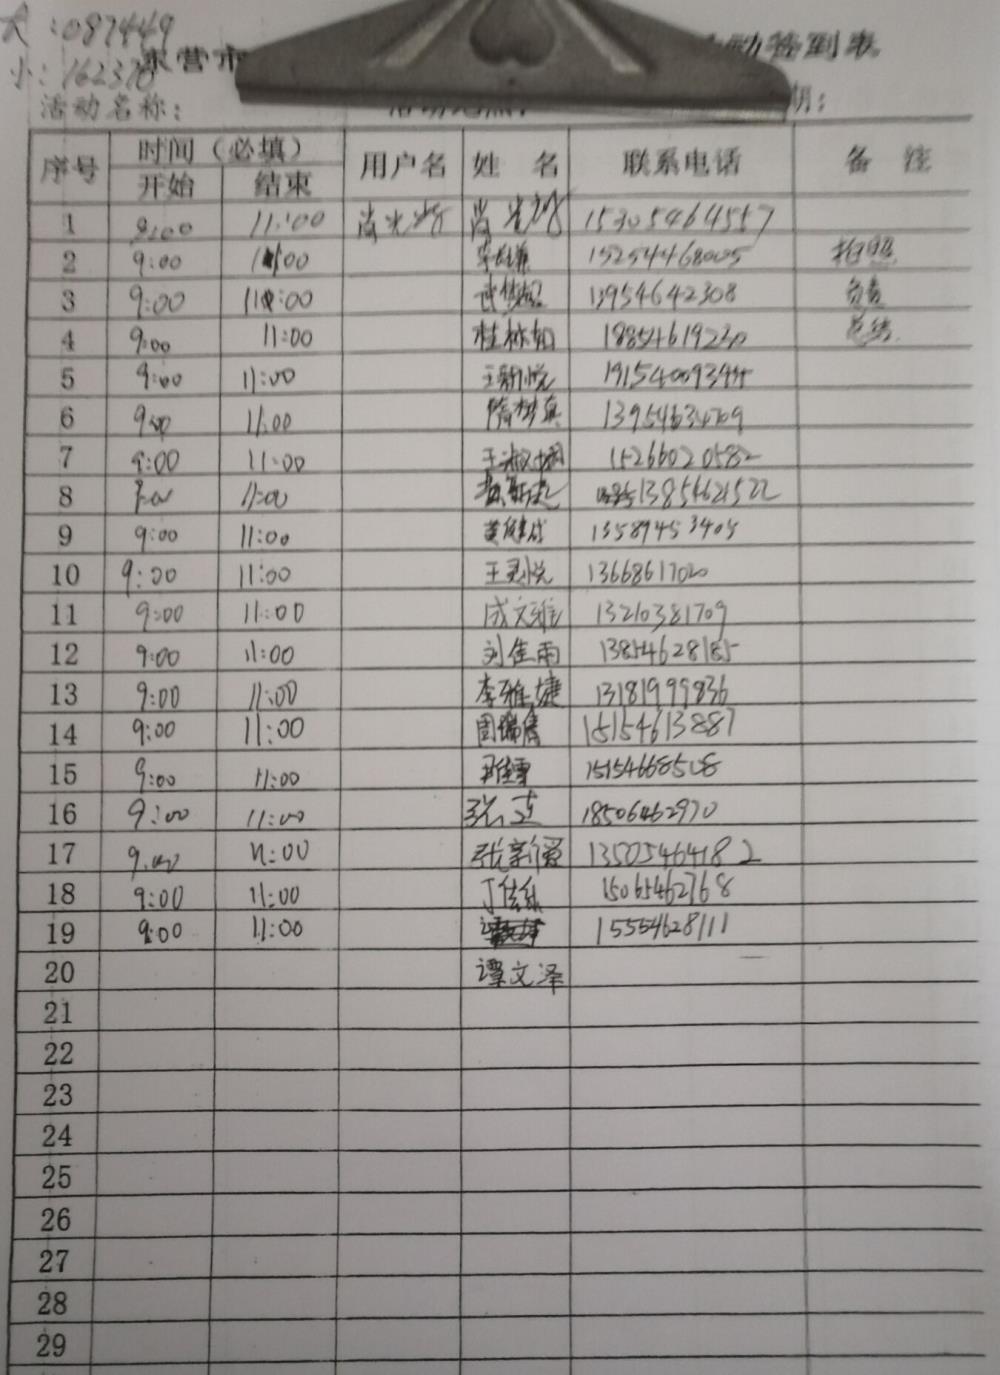 大:087449
小:162370
东营市 动签到表
活动名称: 活动地点: 期:
序号 时间(必填) 用户名 姓 名 联系电话 备 注
开始 结束
1 9:00 11:00 15305464557
2 9:00 11:00 15254468005 拍照
3 9:00 11:00 13954642308 负责
4 9:00 11:00 桂林如 18854619230 总结
5 9:00 11:00 王新悦
6 9:00 11:00 隋梦真 13954634709
7 9:00 11:00 15266020582
8 9:00 11:00 13854621522
9 9:00 11:00 黄健成 13589453405
10 9:00 11:00 王灵悦 13668617020
11 9:00 11:00 成文雅 13210381709
12 9:00 11:00 刘佳雨 13854628185
13 9:00 11:00 李雅婕 13181999836
14 9:00 11:00 15154613887
15 9:00 11:00 15154668508
16 9:00 11:00 18506462970
17 9:00 11:00 13505464182
18 9:00 11:00 15065462768
19 9:00 11:00 15554628111
20 谭文泽
21
22
23
24
25
26
27
28
29